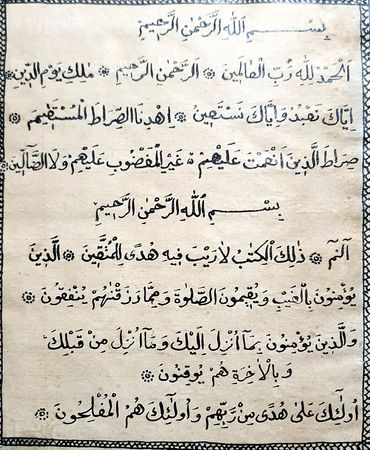 بِسْمِ اللّٰهِ الرَّحْمٰنِ الرَّحِيْمِ
اَلْحَمْدُ لِلّٰهِ رَبِّ الْعَالَمِيْنَ ۞ اَلرَّحْمٰنِ الرَّحِيْمِ ۞ مٰلِكِ يَوْمِ الدِّيْنِ ۞
اِيَّاكَ نَعْبُدُ وَاِيَّاكَ نَسْتَعِيْنُ ۞ اِهْدِنَا الصِّرَاطَ الْمُسْتَقِيْمَ ۞
صِرَاطَ الَّذِيْنَ اَنْعَمْتَ عَلَيْهِمْ ۙ غَيْرِ الْمَغْضُوْبِ عَلَيْهِمْ وَلَا الضَّآلِّيْنَ ۞
بِسْمِ اللّٰهِ الرَّحْمٰنِ الرَّحِيْمِ
الٓمّٓ ۞ ذٰلِكَ الْكِتٰبُ لَا رَيْبَ فِيْهِ هُدًى لِلْمُتَّقِيْنَ ۞ الَّذِيْنَ
يُؤْمِنُوْنَ بِالْغَيْبِ وَيُقِيْمُوْنَ الصَّلٰوةَ وَمِمَّا رَزَقْنٰهُمْ يُنْفِقُوْنَ ۞
وَالَّذِيْنَ يُؤْمِنُوْنَ بِمَآ اُنْزِلَ اِلَيْكَ وَمَآ اُنْزِلَ مِنْ قَبْلِكَ
وَبِالْاٰخِرَةِ هُمْ يُوْقِنُوْنَ ۞
اُولٰٓئِكَ عَلٰى هُدًى مِنْ رَبِّهِمْ وَاُولٰٓئِكَ هُمُ الْمُفْلِحُوْنَ ۞